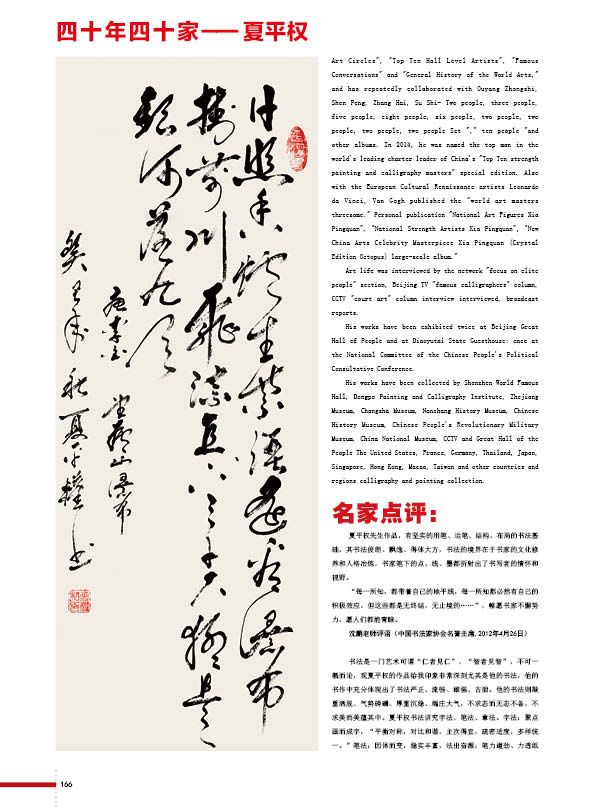 四十年四十家——夏平权
日照香炉生紫烟遥看瀑布
挂前川飞流直下三千尺疑是
银河落九天
唐李白 望庐山瀑布
癸巳年秋夏平权书
Art Circles", "Top Ten Hall Level Artists", "Famous
Conversations" and "General History of the World Arts,"
and has repeatedly collaborated with Ouyang Zhongshi,
Shen Peng, Zhang Hai, Su Shi- Two people, three people,
five people, eight people, six people, two people, two
people, two people, two people Set "," ten people "and
other albums. In 2014, he was named the top man in the
world's leading charter leader of China's "Top Ten strength
painting and calligraphy masters" special edition. Also
with the European Cultural Renaissance artists Leonardo
da Vinci, Van Gogh published the "world art masters
threesome." Personal publication "National Art Figures Xia
Pingquan", "National Strength Artists Xia Pingquan", "New
China Arts Celebrity Masterpiece Xia Pingquan (Crystal
Edition Octopus) large-scale album."
Art life was interviewed by the network "focus on elite
people" section, Beijing TV "famous calligraphers" column,
CCTV "court art" column interview interviewed, broadcast
reports.
His works have been exhibited twice at Beijing Great
Hall of People and at Diaoyutai State Guesthouse: once at
the National Committee of the Chinese People's Political
Consultative Conference.
His works have been collected by Shenzhen World Famous
Hall, Dongpo Painting and Calligraphy Institute, Zhejiang
Museum, Changsha Museum, Nanchang History Museum, Chinese
History Museum, Chinese People's Revolutionary Military
Museum, China National Museum, CCTV and Great Hall of the
People The United States, France, Germany, Thailand, Japan,
Singapore, Hong Kong, Macao, Taiwan and other countries and
regions calligraphy and painting collection.
名家点评：
夏平权先生作品，有坚实的用笔、运笔、结构、布局的书法基
础，其书法俊朗、飘逸、得体大方，书法的境界在于书家的文化修
养和人格冶炼，书家笔下的点、线、墨都折射出了书写者的情怀和
视野。
“每一所知，都带着自己的地平线，每一所知都必然有自己的
积极效应，但这些都是无终结，无止境的……”，帷愿书家不懈努
力，愿人们都能青睐。
沈鹏老师评语（中国书法家协会名誉主席，2012年4月26日）
书法是一门艺术可谓“仁者见仁”，“智者见智”，不可一
概而论，观夏平权的作品给我印象非常深刻尤其是他的书法，他的
书作中充分体现出了书法严正、流畅、雄强、古拙。他的书法则凝
重洒脱、气势磅礴、厚重沉稳、端庄大气，不求态而无态不备，不
求美而美蕴其中。夏平权书法讲究字法、笔法、章法。字法：聚点
画而成字，“平衡对称，对比和谐，主次得宜，疏密适度，多样统
一。”笔法：因体而变，稳实丰富，法出奇源；笔力遒劲、力透纸
166